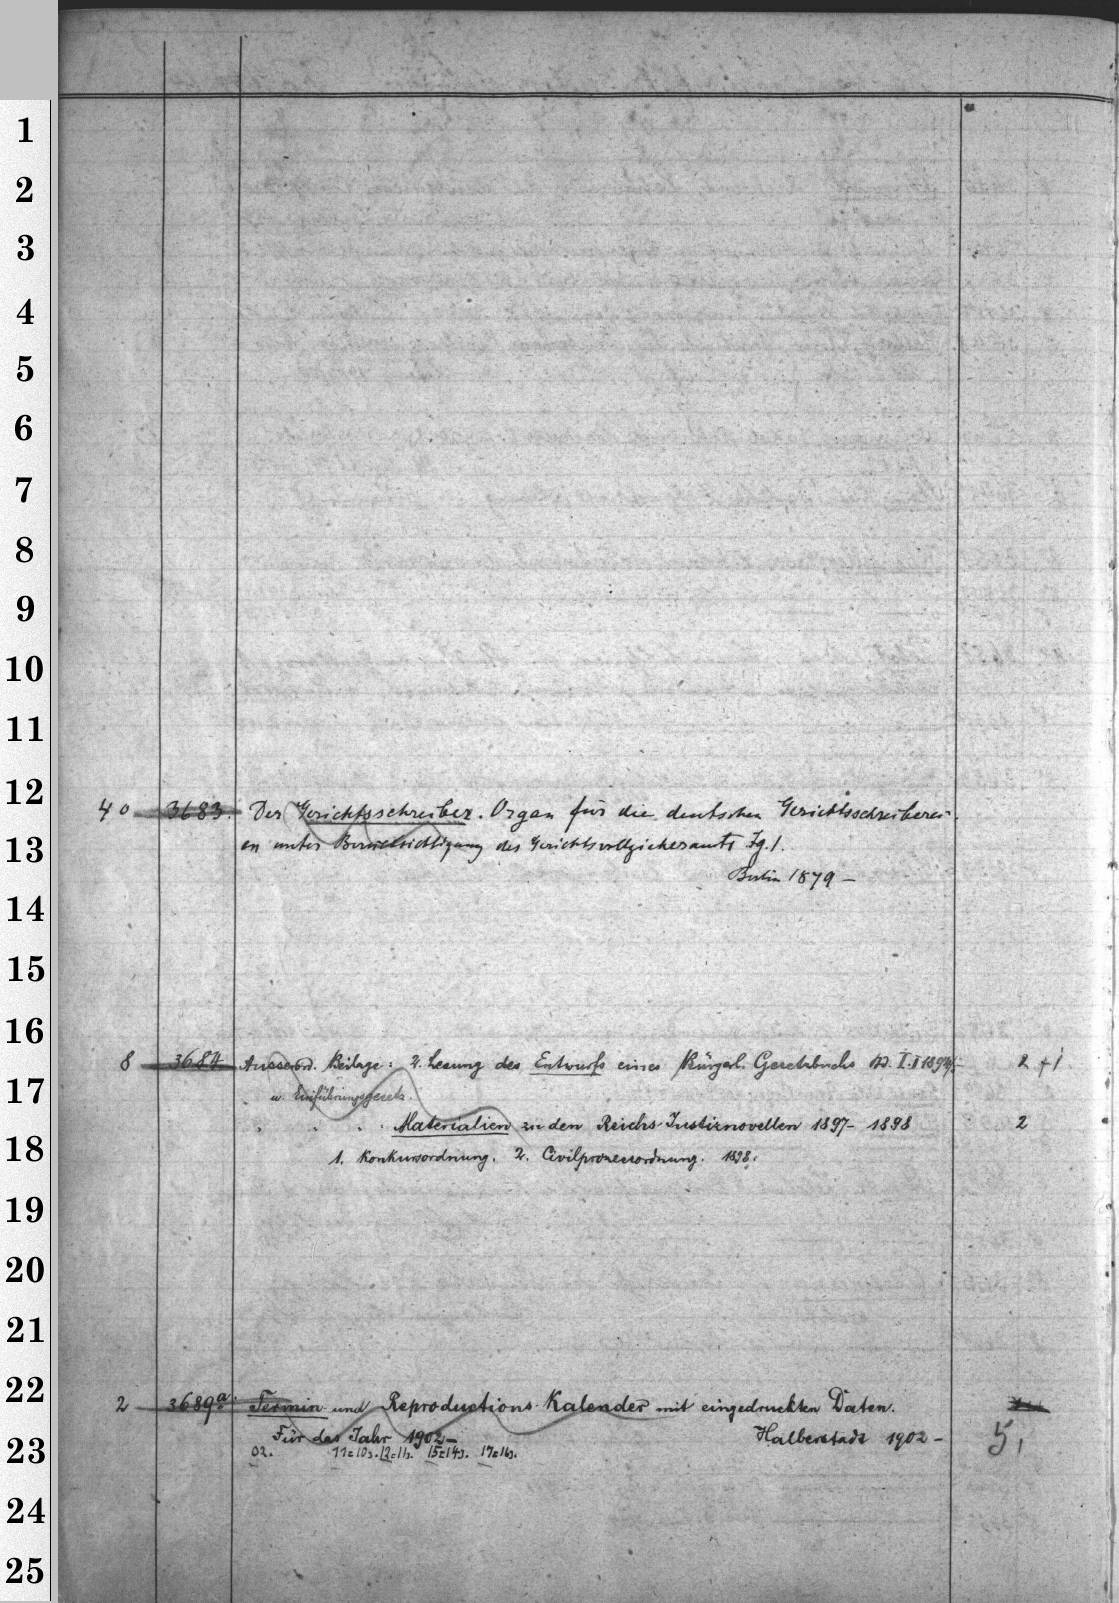 1
2
3
4
5
6
7
8
9
10
11
12
4 o 3683. Der Gerichtsschreiber. Organ für die deutschen Gerichtsschreiberei-
13
en unter Berücksichtigung des Gerichtsvollzieheramts Jg. 1.
Berlin 1879 –
14
15
16
8 3684 Ausserord. Beilage: 2. Lesung des Entwurfs eines Bürgerl. Gesetzbuchs 2 + 1
17
u. Einführungsgesetz.
Materialien zu den Reichs-Justiznovellen 1897– 1898 2
18
1. Konkursordnung. 2. Civilprozessordnung. 1898.
19
20
21
22
2 3689a. Termin und Reproductions-Kalender mit eingedruckten Daten.
23
Für das Jahr 1902– Halberstadt 1902 – 5,
02. 11=10J. 12=11J. 15=14J. 17=16J.
24
25